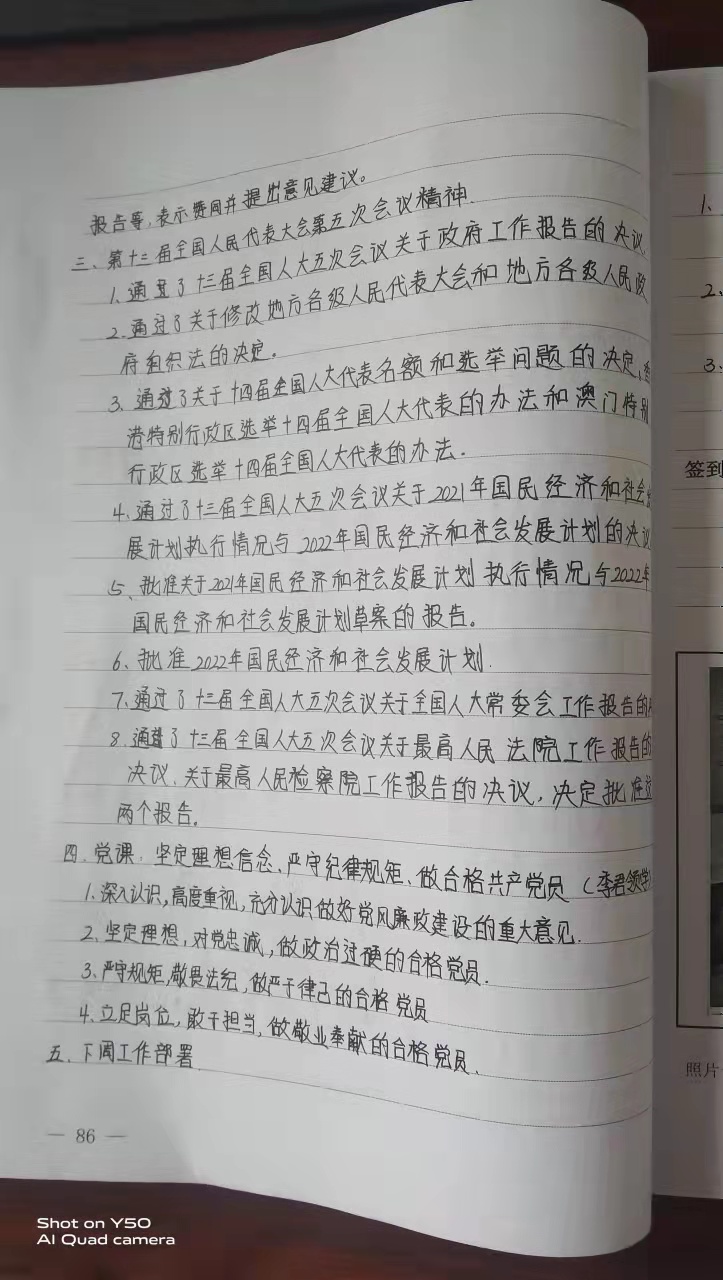 报告等,表示赞同并提出意见建议。
三、第十三届全国人民代表大会第五次会议精神.
1.通过了十三届全国人大五次会议关于政府工作报告的决议
2.通过了关于修改地方各级人民代表大会和地方各级人民政
府组织法的决定。
3.通过了关于十四届全国人大代表名额和选举问题的决定、香
港特别行政区选举十四届全国人大代表的办法和澳门特别
行政区选举十四届全国人大代表的办法.
4.通过了十三届全国人大五次会议关于2021年国民经济和社会发
展计划执行情况与2022年国民经济和社会发展计划的决议
5、批准关于2021年国民经济和社会发展计划执行情况与2022年
国民经济和社会发展计划草案的报告。
6、批准2022年国民经济和社会发展计划.
7、通过了十三届全国人大五次会议关于全国人大常委会工作报告的
8.通过了十三届全国人大五次会议关于最高人民法院工作报告的
决议、关于最高人民检察院工作报告的决议,决定批准这
两个报告。
四、党课:坚定理想信念、严守纪律规矩、做合格共产党员(李君领学
1.深入认识,高度重视,充分认识做好党风廉政建设的重大意见.
2.坚定理想,对党忠诚,做政治过硬的合格党员.
3.严守规矩,敬畏法纪,做严于律己的合格党员
4.立足岗位,敢于担当,做敬业奉献的合格党员.
五.下周工作部署
— 86 —
1.
2、
3.
签到
照片
Shot on Y50
AI Quad camera